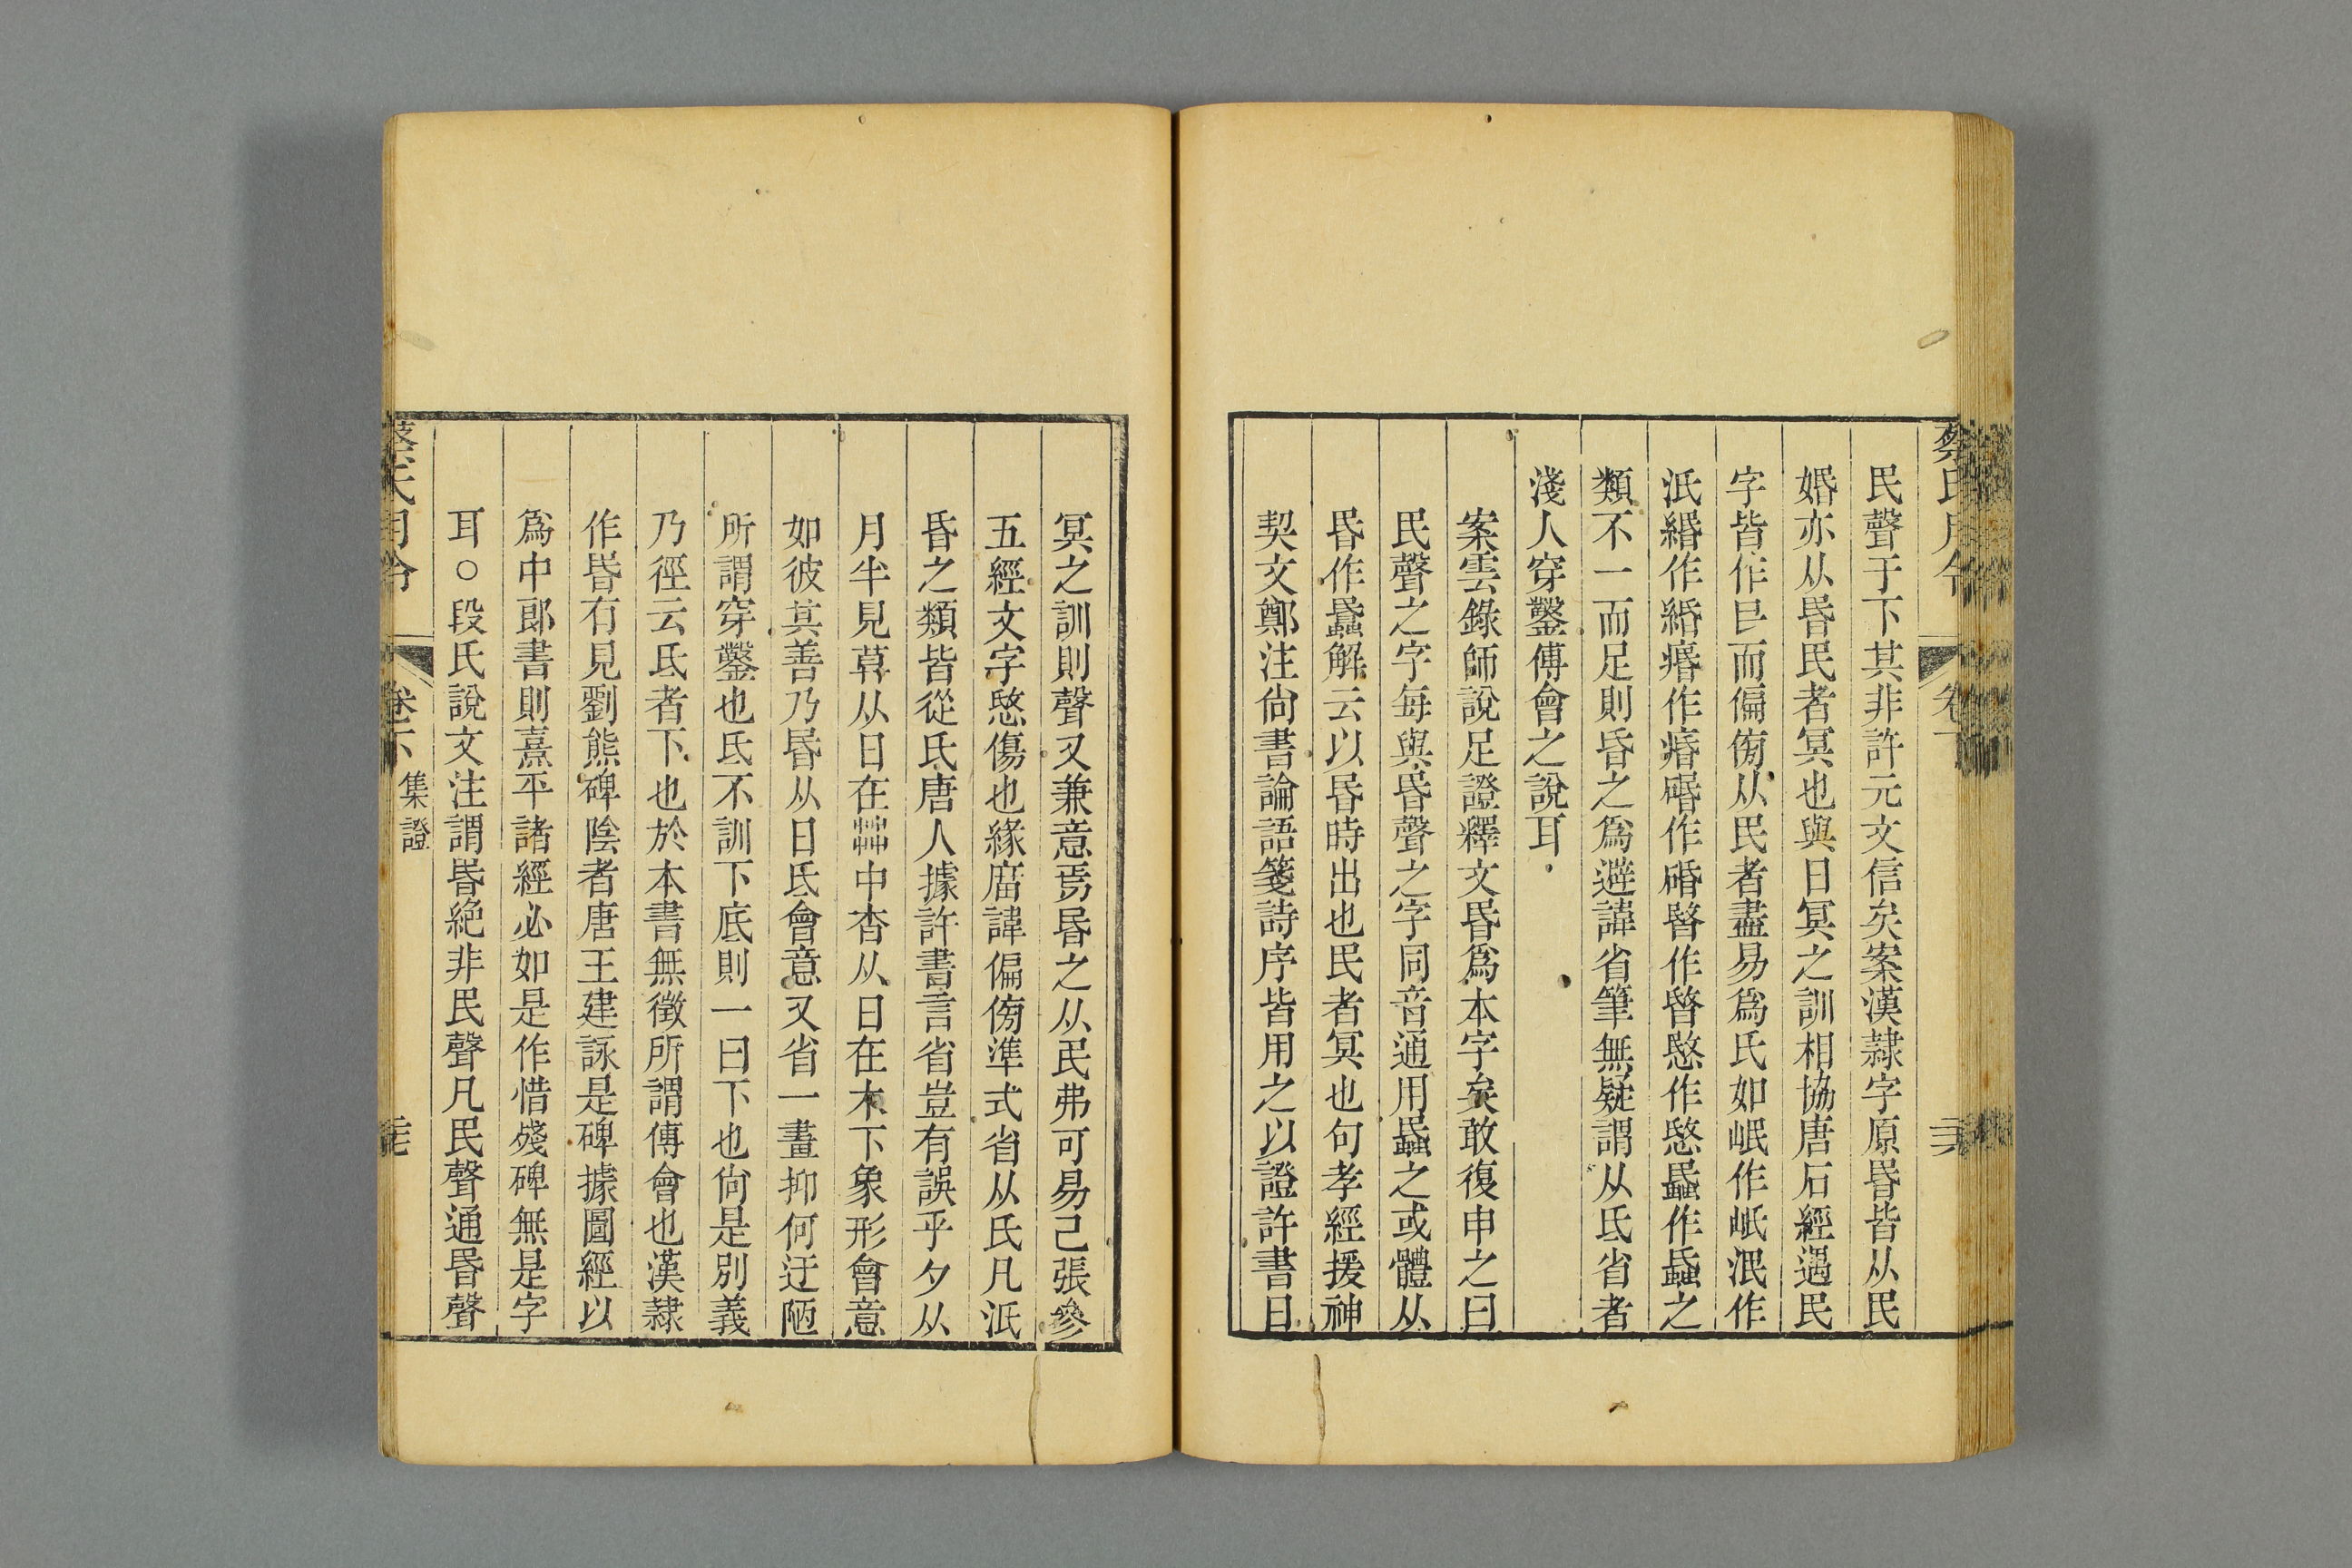 民聲于下其非許元文信矣案漢隸字原昬皆从民
婚亦从昬民者冥也與日冥之訓相協唐石經遇民
字皆作𡰱而偏傍从民者盡易爲氏如岷作㟭泯作
泜緡作緍痻作㾪碈作碈暋作暋愍作愍蟁作蟁之
類不一而足則昏之爲避諱省筆無疑謂从氐省者
淺人穿鑿傅會之說耳
案雲錄師說足證釋文昬爲本字矣敢復申之曰
民聲之字每與昬聲之字同音通用蟁之或體从
昬作䘇解云以昬時出也民者冥也句孝經援神
契文鄭注尙書論語箋詩序皆用之以證許書日
冥之訓則聲又兼意焉昬之从民弗可易已張參
五經文字愍傷也緣廟諱偏傍準式省从氏凡泜
昏之類皆從氏唐人據許書言省豈有誤乎夕从
月半見莫从日在茻中杳从日在木下象形會意
如彼其善乃昬从日氐會意又省一畫抑何迂陋
所謂穿鑿也氐不訓下底則一曰下也尙是別義
乃徑云氐者下也於本書無徵所謂傅會也漢隸
作昬有見劉熊碑陰者唐王建詠是碑據圖經以
爲中郎書則熹平諸經必如是作惜殘碑無是字
耳○段氏說文注謂昬絶非民聲凡民聲通昬聲
蔡氏月令
卷下
集證